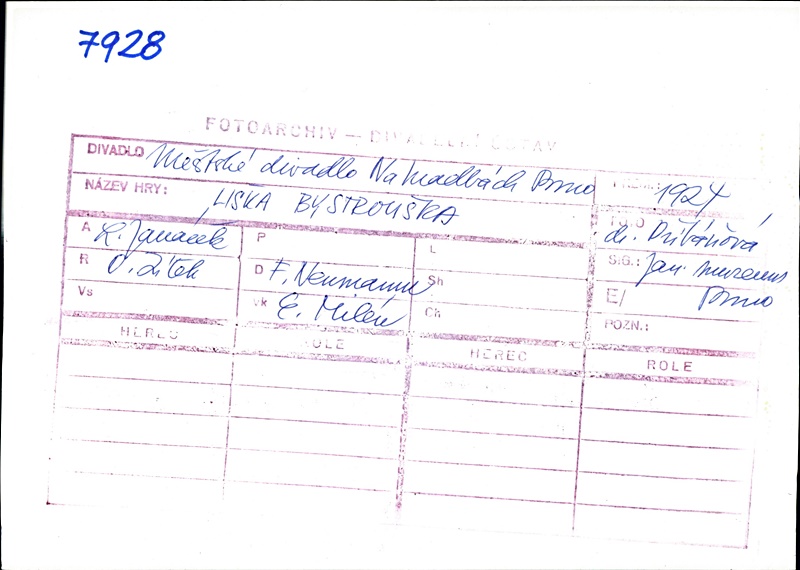 7928
FOTOARCHIV — DIVADELNÍ ÚSTAV
DIVADLO Městské divadlo Na hradbách Brno
PREM.: 1924
NÁZEV HRY: LIŠKA BYSTROUŠKA
FOTO dr. Přibáňová
A L. Janáček
P
L
SIG.: Jan. muzeum Brno
R O. Zítek
D F. Neumann
Sh
E/
Vs
Vk E. Milén
Ch
POZN.:
HEREC ROLE HEREC ROLE